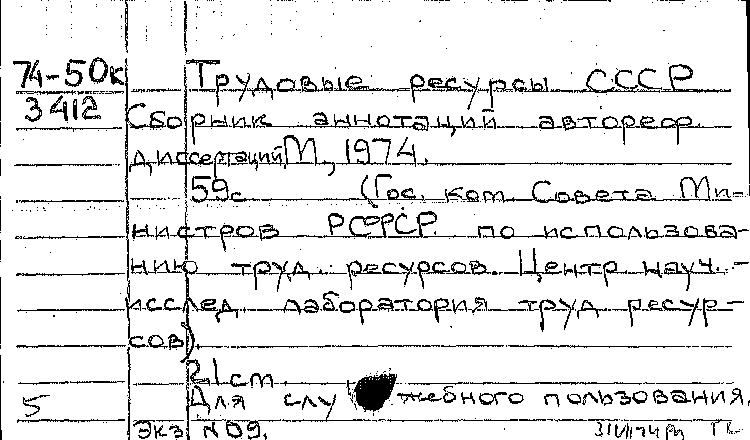 74-50к Трудовые ресурсы СССР
3412 Сборник аннотаций автореф.
диссертаций, М., 1974.
59с (Гос. ком. Совета Ми-
нистров РСФСР по использова-
нию труд. ресурсов. Центр. науч.-
исслед. лаборатория труд ресур-
сов).
21 см.
5 Для служебного пользования.
Экз N 09.